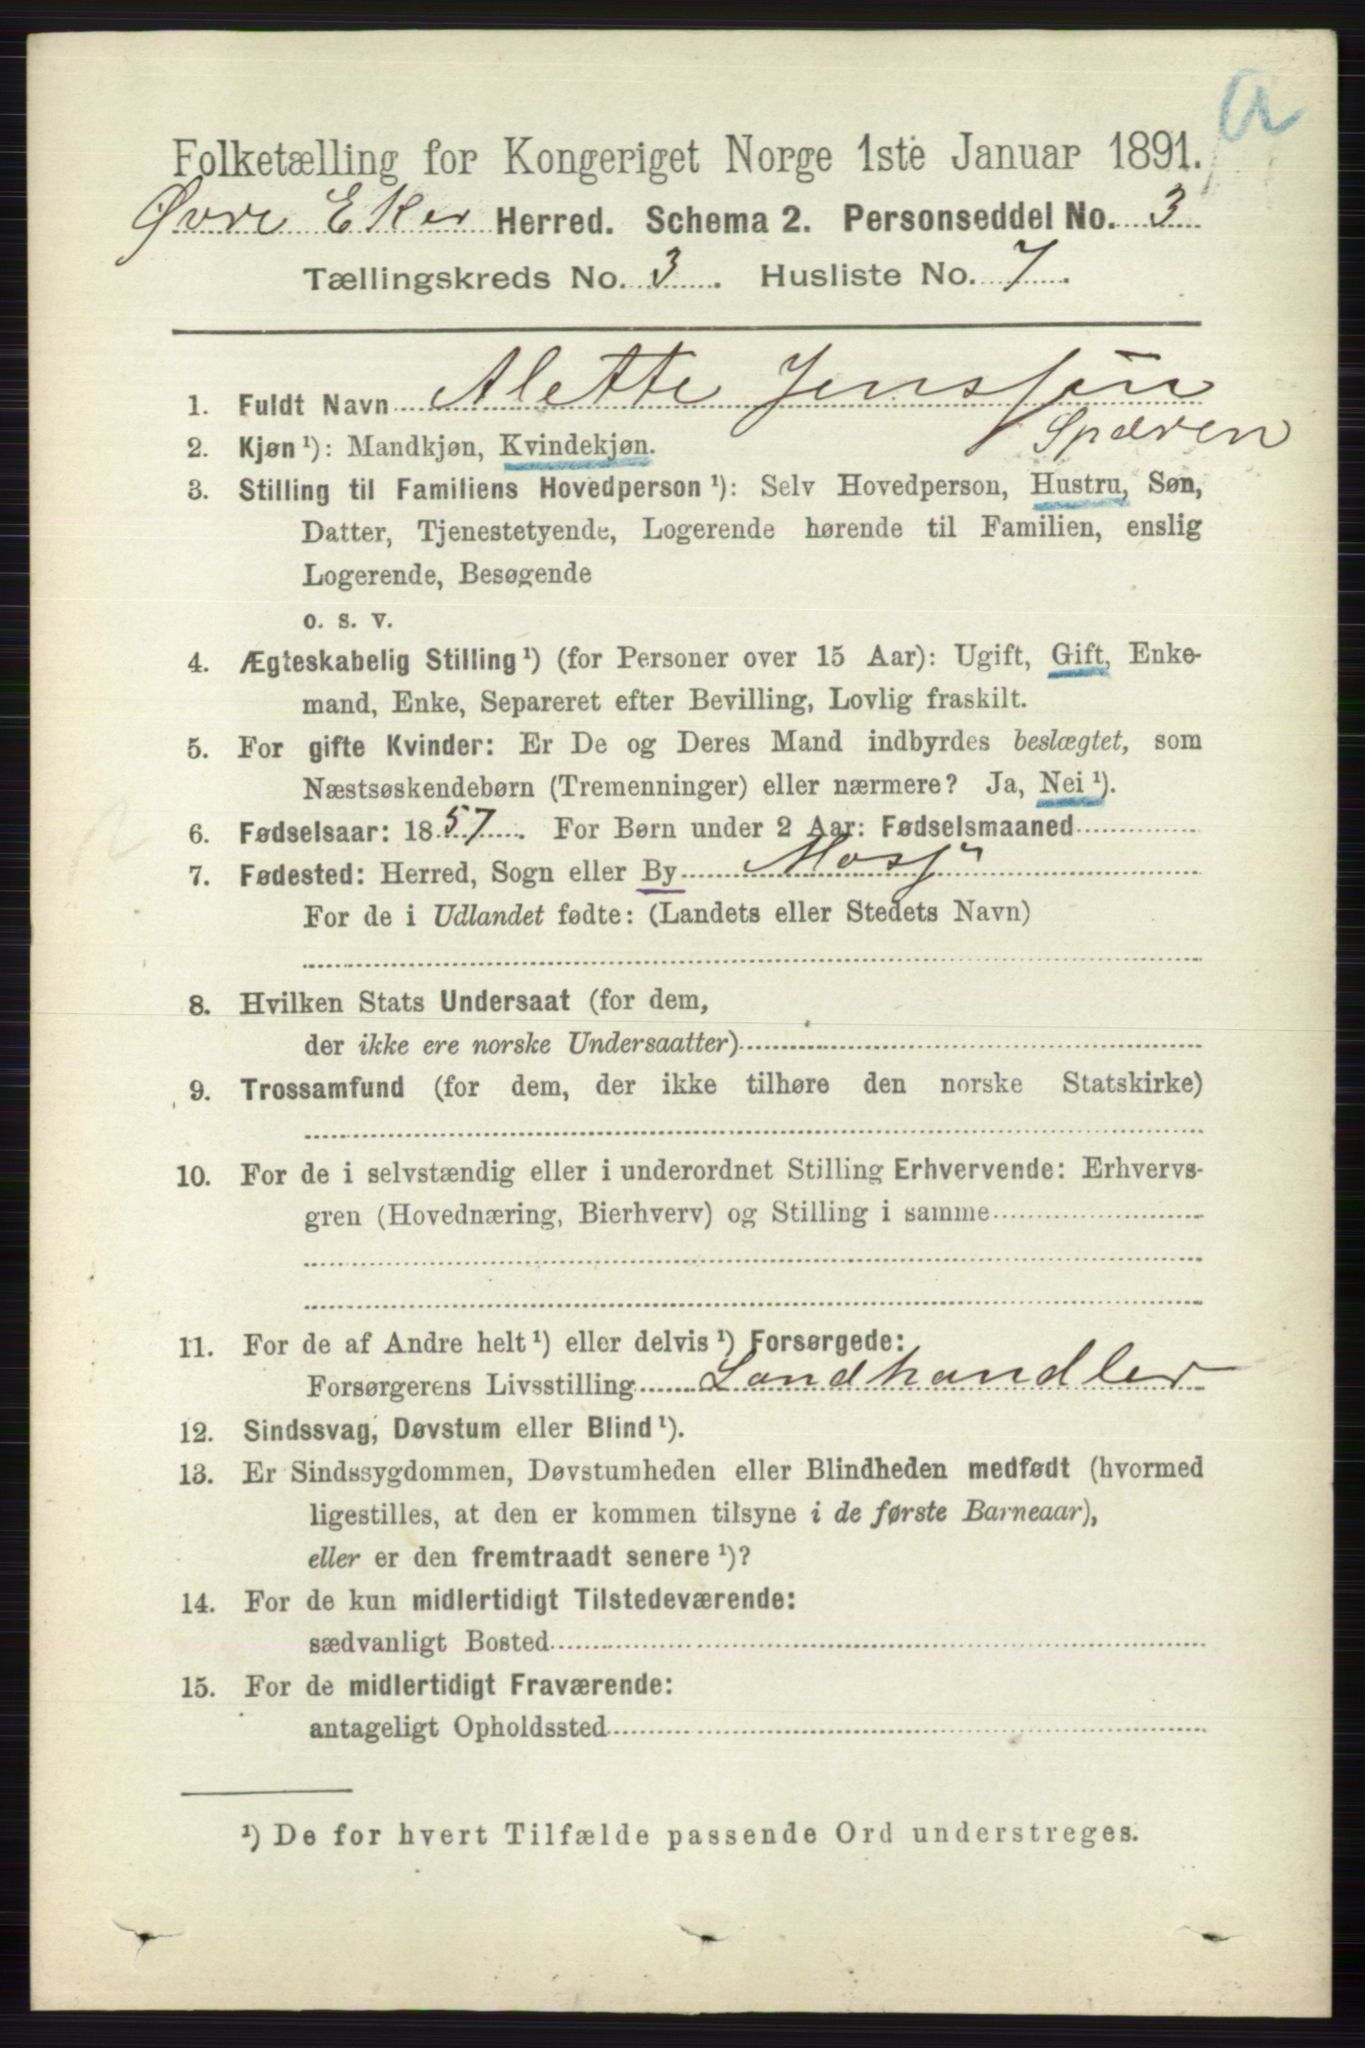 a
Folketælling for Kongeriget Norge 1ste Januar 1891.
Øvre Eker Herred. Schema 2. Personseddel No. 3
Tællingskreds No. 3. Husliste No. 7.
1. Fuldt Navn Alette Jenssen
Spæren
2. Kjøn ¹): Mandkjøn, Kvindekjøn.
3. Stilling til Familiens Hovedperson ¹): Selv Hovedperson, Hustru, Søn,
Datter, Tjenestetyende, Logerende hørende til Familien, enslig
Logerende, Besøgende
o. s. v.
4. Ægteskabelig Stilling ¹) (for Personer over 15 Aar): Ugift, Gift, Enke-
mand, Enke, Separeret efter Bevilling, Lovlig fraskilt.
5. For gifte Kvinder: Er De og Deres Mand indbyrdes beslægtet, som
Næstsøskendebørn (Tremenninger) eller nærmere? Ja, Nei ¹).
6. Fødselsaar: 1857. For Børn under 2 Aar: Fødselsmaaned
7. Fødested: Herred, Sogn eller By Moss
For de i Udlandet fødte: (Landets eller Stedets Navn)
8. Hvilken Stats Undersaat (for dem,
der ikke ere norske Undersaatter)
9. Trossamfund (for dem, der ikke tilhøre den norske Statskirke)
10. For de i selvstændig eller i underordnet Stilling Erhvervende: Erhvervs-
gren (Hovednæring, Bierhverv) og Stilling i samme
11. For de af Andre helt ¹) eller delvis ¹) Forsørgede:
Forsørgerens Livsstilling Landhandler
12. Sindssvag, Døvstum eller Blind ¹).
13. Er Sindssygdommen, Døvstumheden eller Blindheden medfødt (hvormed
ligestilles, at den er kommen tilsyne i de første Barneaar),
eller er den fremtraadt senere ¹)?
14. For de kun midlertidigt Tilstedeværende:
sædvanligt Bosted
15. For de midlertidigt Fraværende:
antageligt Opholdssted
¹) De for hvert Tilfælde passende Ord understreges.